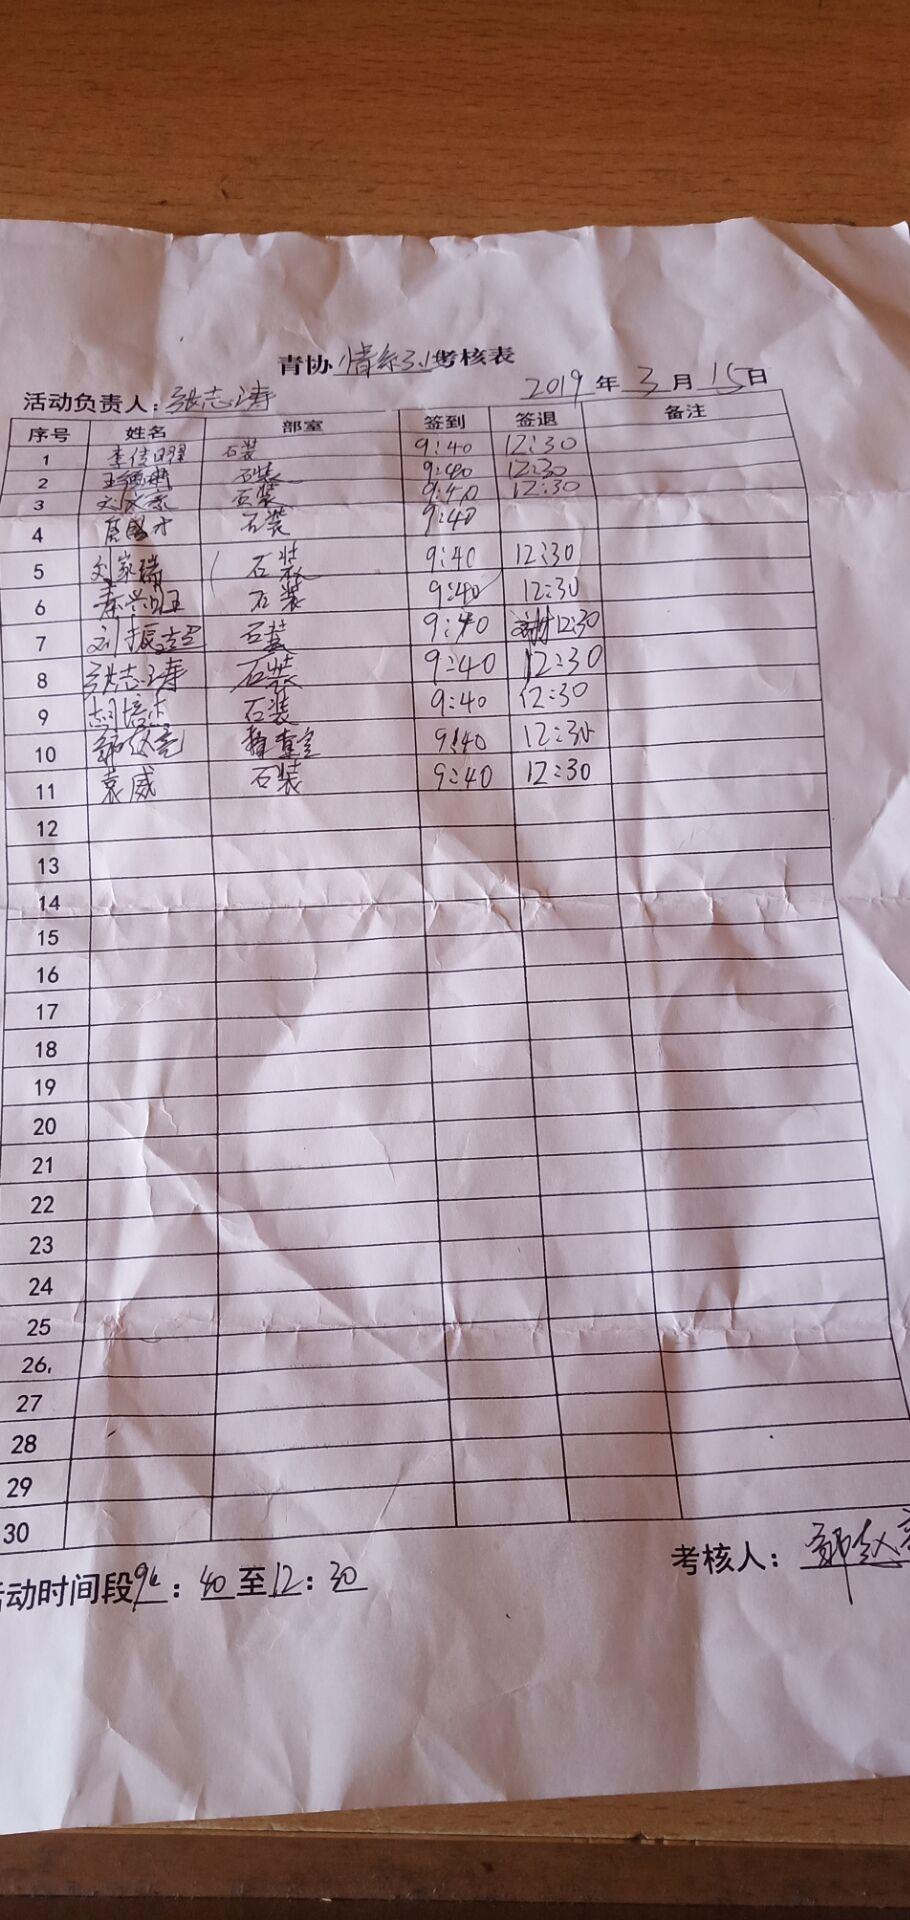 青协 情系 考核表
活动负责人：张志涛 2019年3月15日
序号 姓名 部室 签到 签退 备注
1 李佳曜 石装 9:40 12:30
2 石装 9:40 12:30
3 石装 9:40 12:30
4 石装 9:40
5 刘家瑞 石装 9:40 12:30
6 秦兴旺 石装 9:40 12:30
7 刘振 石装 9:40 12:30
8 张志涛 石装 9:40 12:30
9 石装 9:40 12:30
10 9:40 12:30
11 袁威 石装 9:40 12:30
12
13
14
15
16
17
18
19
20
21
22
23
24
25
26
27
28
29
30
考核人：
活动时间段9：40至12：30